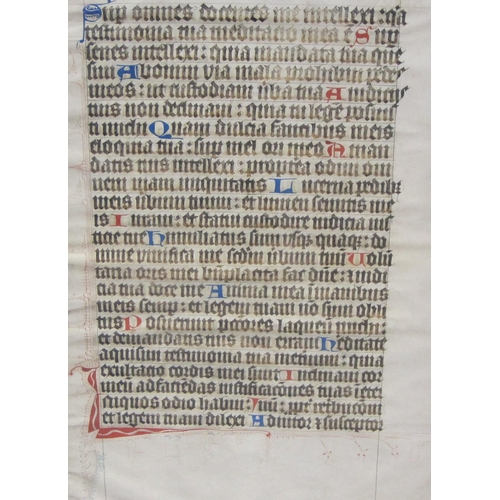 Sup omnes docentes me intellexi : qa
testimonia tua meditatio mea ē Sup
senes intellexi : quia mandata tua que
siui Ab omni via mala prohibui pedes
meos : ut custodiam ūba tua A iudicijs
tuis non declinaui : quia tu legē posuisti
michi Quam dulcia faucibus meis
eloquia tua : sup mel ori meo A man
datis tuis intellexi : propterea odiui om
nem uiam iniquitatis Lucerna pedibȝ
meis ūbum tuum : et lumen semitis me
is Iuraui : et statui custodire iudicia ius
ticie tue Humiliatus sum usqȝ quaqȝ : do
mine uiuifica me scdm ūbum tuū Uolū
taria oris mei bn̄placita fac dn̄e : ⁊ iudi
cia tua doce me Anima mea ī manibus
meis semp : et legem tuam nō sum obli
tus Posuerunt pctores laqueū michi :
et de mandatis tuis non erraui Heditate
aquisiui testimonia tua īeternū : quia
exultatio cordis mei sunt Inclinaui cor
meū ad faciēdas iustificationes tuas ī et̄
Iniquos odio habui :
et legem tuam dilexi Adiutor ⁊ susceptor